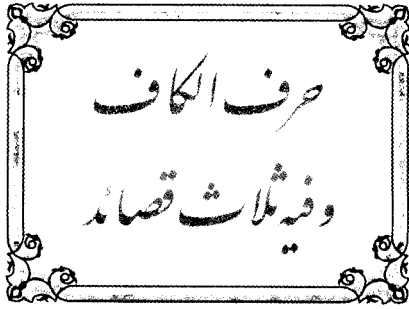 حرف الكاف
وفيه ثلاث قصائد